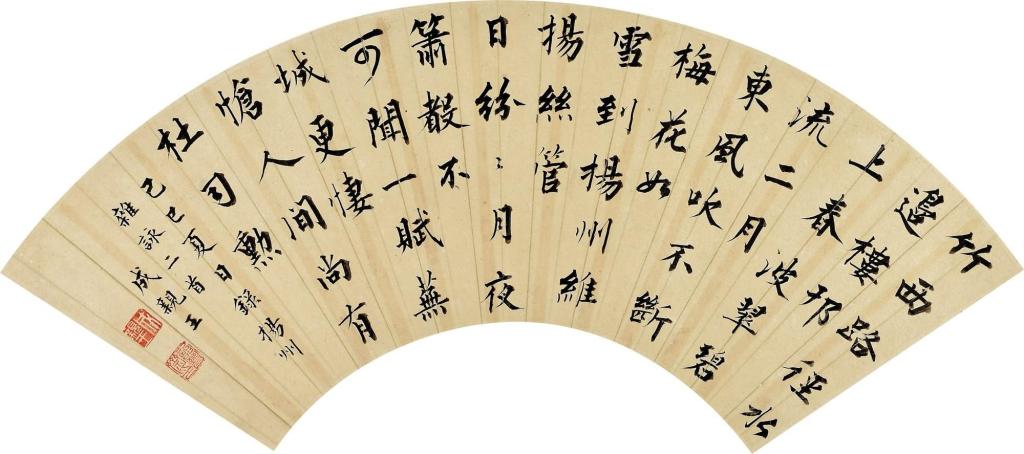 竹西路徑水
邊樓邗
上春波翠碧
流二月
東風吹不斷
梅花如
雪到揚州維
揚絲管
日紛〻月夜
簫聲不
可聞一賦蕪
城更悽
愴人間尚有
杜司勳
己巳夏日錄揚州
雜詠二首
成親王